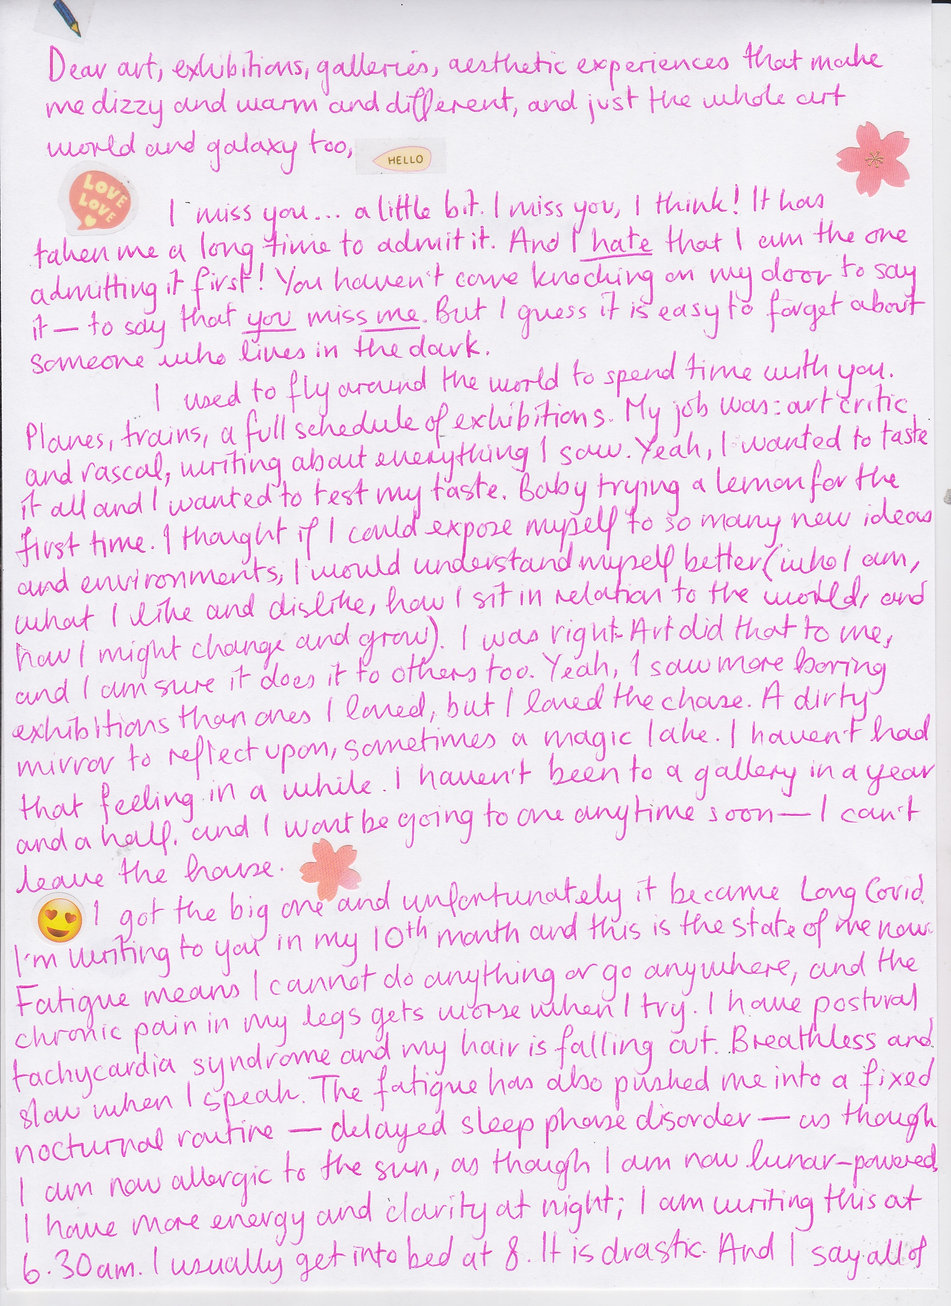 Dear art, exhibitions, galleries, aesthetic experiences that make
me dizzy and warm and different, and just the whole art
world and galaxy too,
HELLO
LOVE
LOVE
I miss you... a little bit. I miss you, I think! It has
taken me a long time to admit it. And I hate that I am the one
admitting it first! You haven't come knocking on my door to say
it — to say that you miss me. But I guess it is easy to forget about
someone who lives in the dark.
I used to fly around the world to spend time with you.
Planes, trains, a full schedule of exhibitions. My job was: art critic
and rascal, writing about everything I saw. Yeah, I wanted to taste
it all and I wanted to test my taste. Baby trying a lemon for the
first time. I thought if I could expose myself to so many new ideas
and environments, I would understand myself better (who I am,
what I like and dislike, how I sit in relation to the world, and
how I might change and grow). I was right. Art did that to me,
and I am sure it does it to others too. Yeah, I saw more boring
exhibitions than ones I loved, but I loved the chase. A dirty
mirror to reflect upon, sometimes a magic lake. I haven't had
that feeling in a while. I haven't been to a gallery in a year
and a half. and I wont be going to one anytime soon — I can't
leave the house.
I got the big one and unfortunately it became Long Covid.
I'm writing to you in my 10th month and this is the state of me now.
Fatigue means I cannot do anything or go anywhere, and the
chronic pain in my legs gets worse when I try. I have postural
tachycardia syndrome and my hair is falling out. Breathless and
slow when I speak. The fatigue has also pushed me into a fixed
nocturnal routine — delayed sleep phase disorder — as though
I am now allergic to the sun, as though I am now lunar-powered.
I have more energy and clarity at night; I am writing this at
6.30am. I usually get into bed at 8. It is drastic. And I say all of